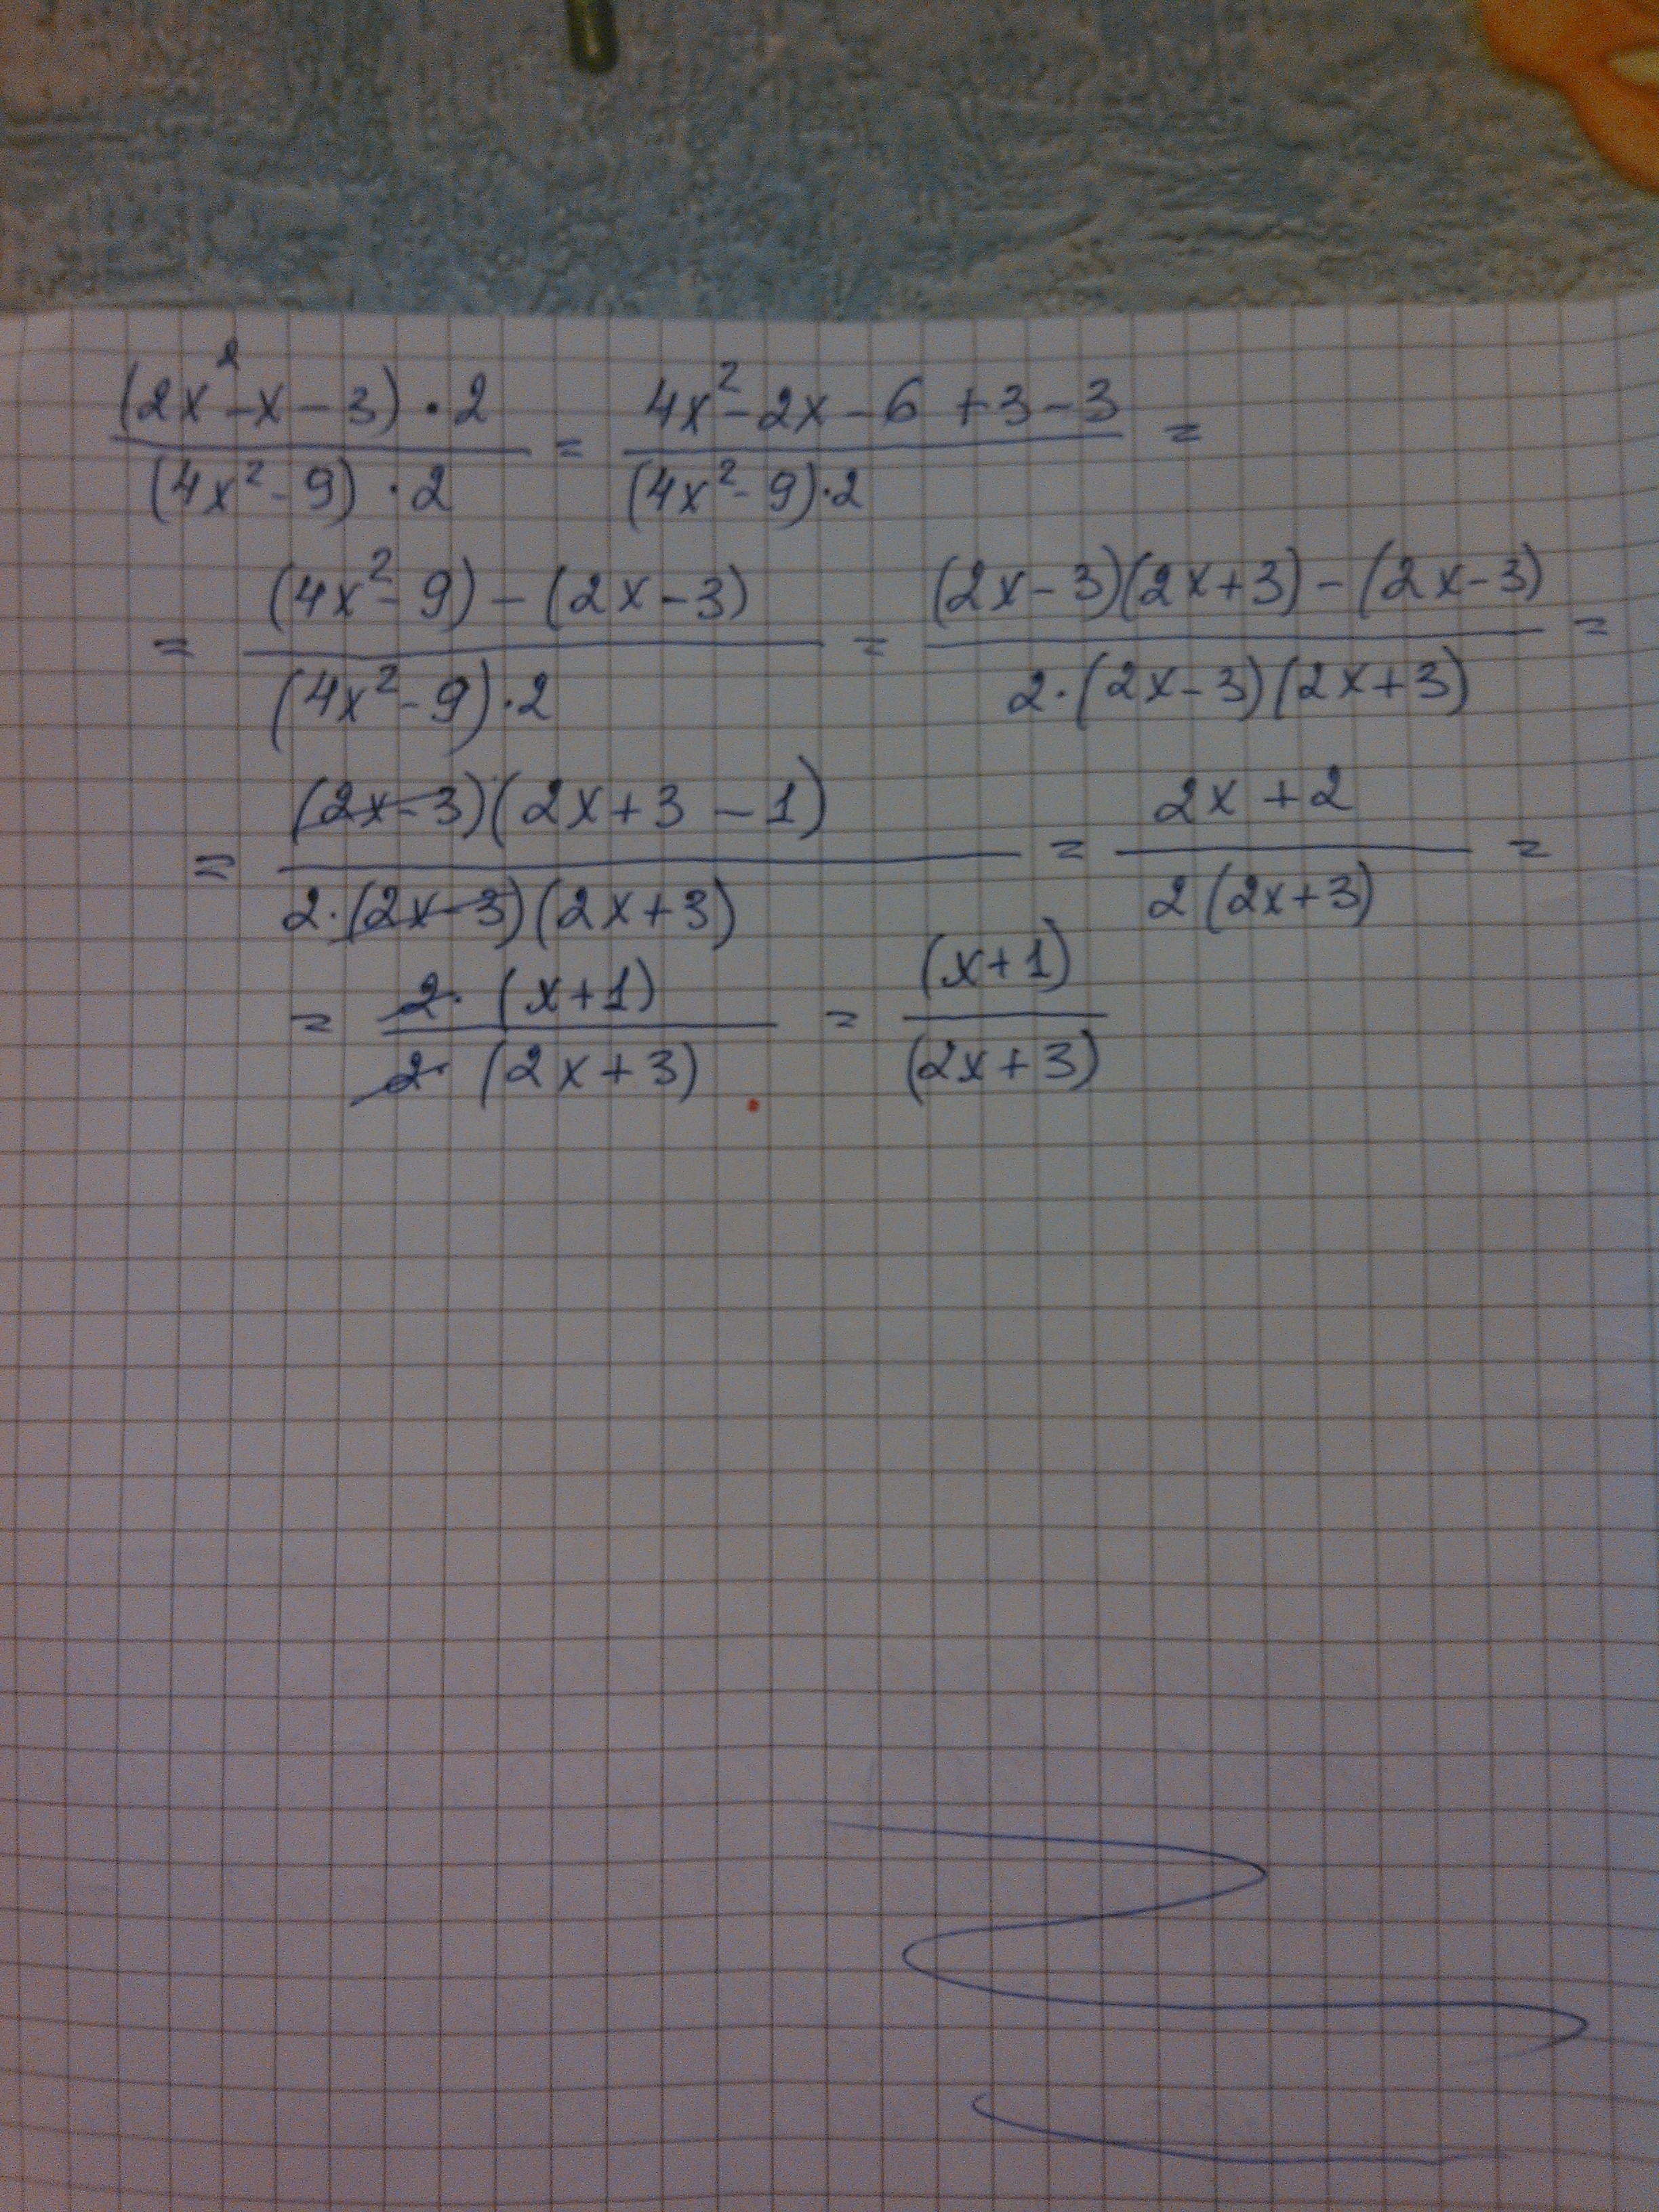 (2x²-x-3)·2/(4x²-9)·2 = 4x²-2x-6+3-3/(4x²-9)·2 =
= (4x²-9)-(2x-3)/(4x²-9)·2 = (2x-3)(2x+3)-(2x-3)/2·(2x-3)(2x+3) =
= (2x-3)(2x+3-1)/2·(2x-3)(2x+3) = 2x+2/2(2x+3) =
= 2·(x+1)/2·(2x+3) = (x+1)/(2x+3)